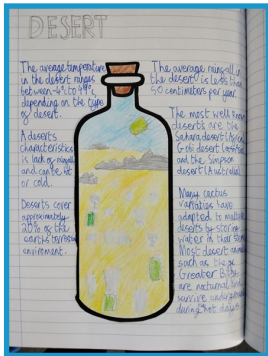 DESERT
The average temperature
in the desert ranges
between -4°c to 49°c
depending on the type
of desert.
A deserts
characteristics
is lack of
and can be hot
or cold.
Deserts cover
approximately
20% of the
earths
enviroment.
The average rainfall in
the desert is less than
50 centimeters per year
The most well known
deserts are the
Sahara desert
Gobi desert
and the Simpson
desert (Australia)
Many cactus
varieties have
adapted to
deserts by storing
water in their
Most desert
such as the
Greater
are nocturnal and
survive
during hot days